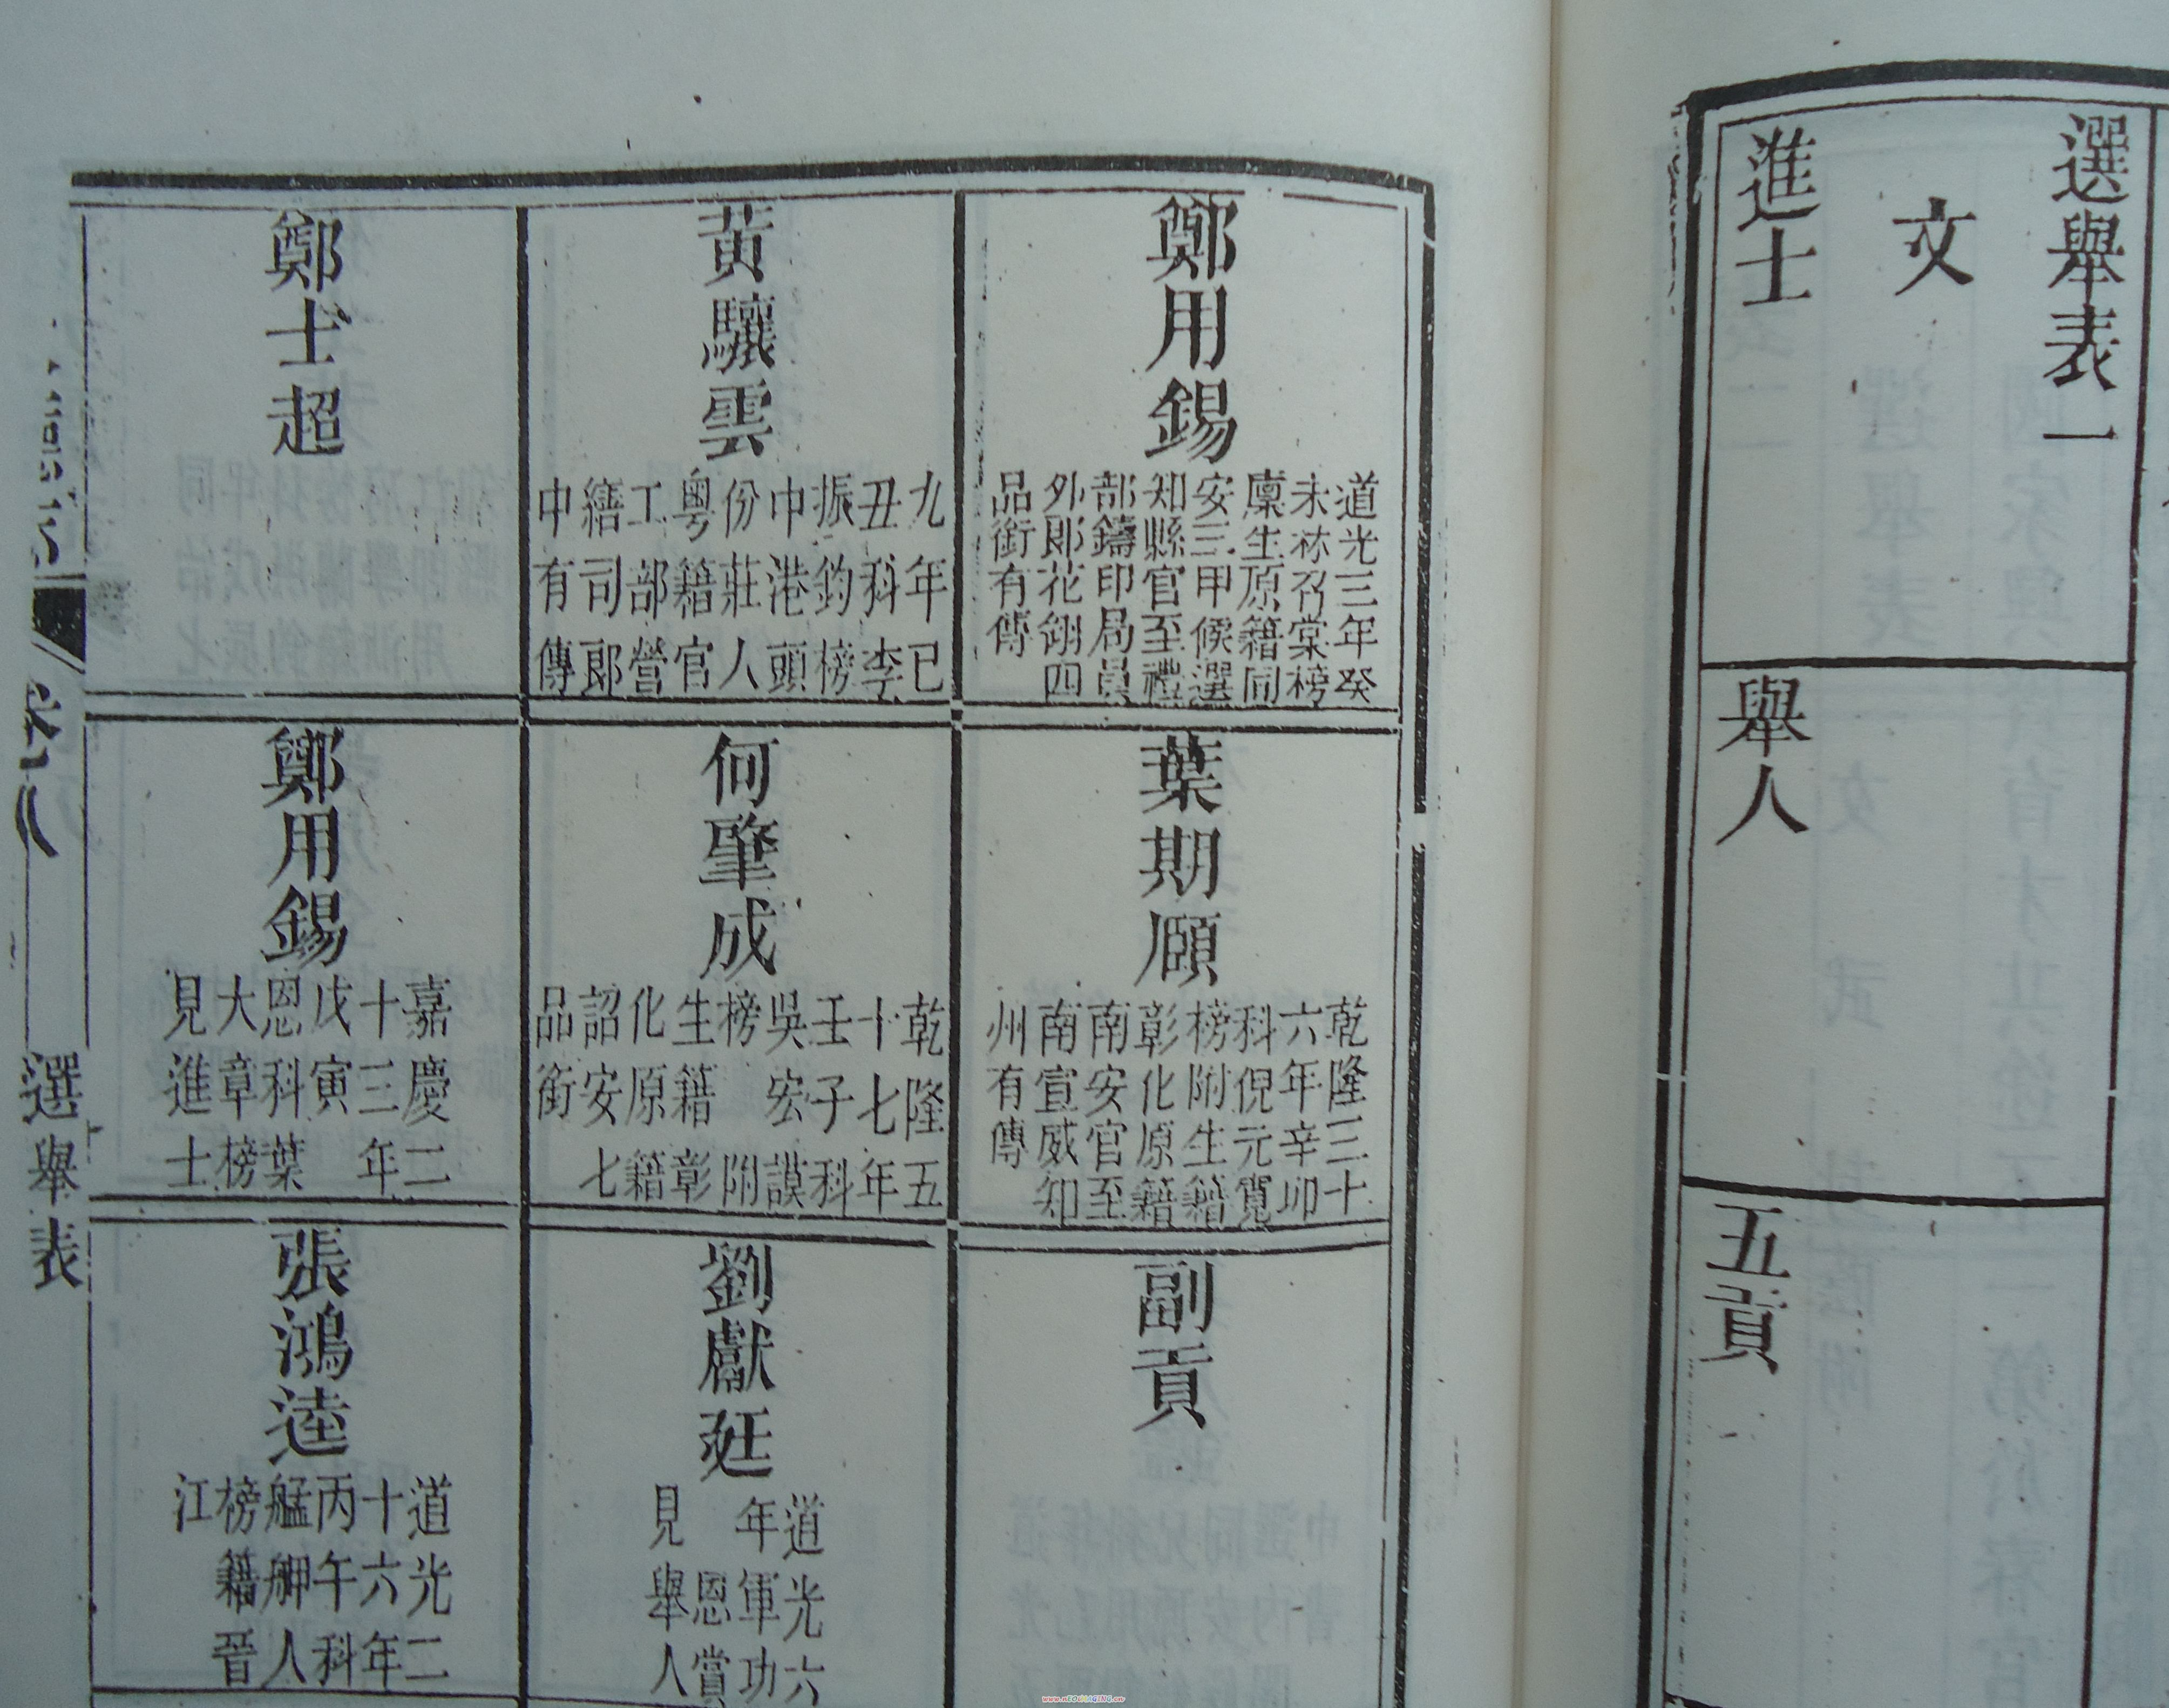 選舉表一
文
進士
舉人
五貢
鄭用錫
道光三年癸
未林召棠榜
廩生原籍同
安三甲候選
知縣官至禮
部鑄印局員
外郎花翎四
品銜有傳
葉期頤
乾隆三十
六年辛卯
科倪元寬
榜附生籍
彰化原籍
南安官至
南宣威知
州有傳
副貢
黃驤雲
九年己
丑科李
振鈞榜
中港頭
份莊人
粵籍官
工部營
繕司郎
中有傳
何肇成
乾隆五
十七年
壬子科
吳宏謨
榜附
生籍彰
化原籍
詔安七
品銜
劉獻廷
道光六
年軍功
恩賞
見舉人
鄭士超
鄭用錫
嘉慶二
十三年
戊寅
恩科葉
大章榜
見進士
張鴻逵
道光二
十六年
丙午科
艋舺人
榜籍晉
江
選舉表
www.NEOIMAGING.cn